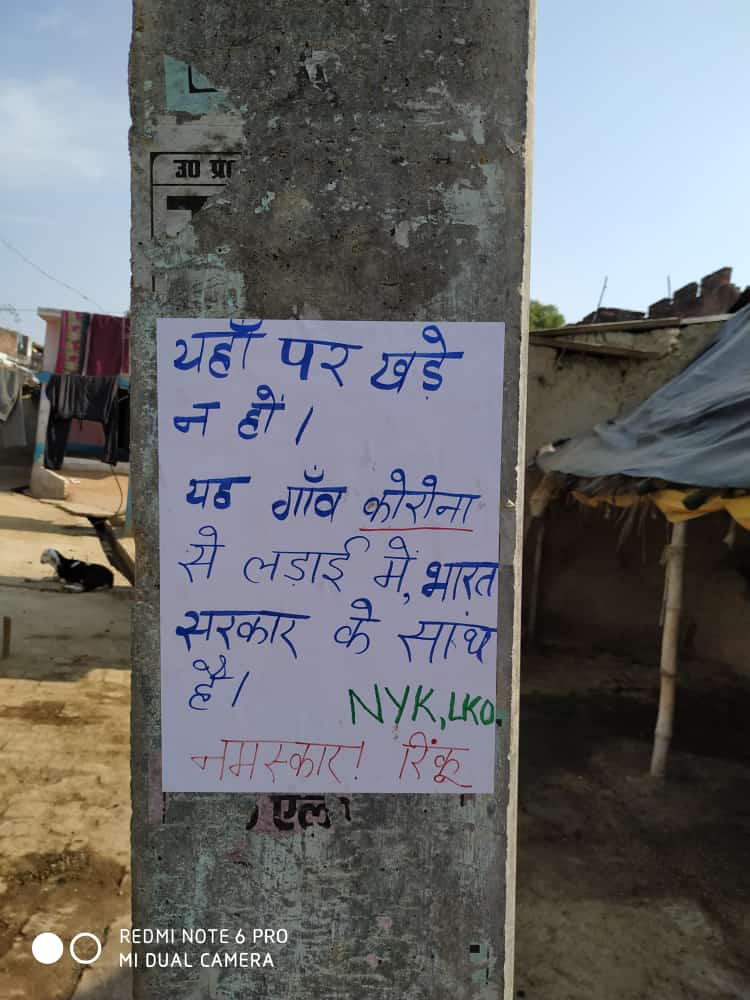 उ0 प्रा
यहाँ पर खड़े
न हों।
यह गाँव कोरोना
से लड़ाई में, भारत
सरकार के साथ
है।
NYK, LKO.
नमस्कार! रिंकू
एल
REDMI NOTE 6 PRO
MI DUAL CAMERA